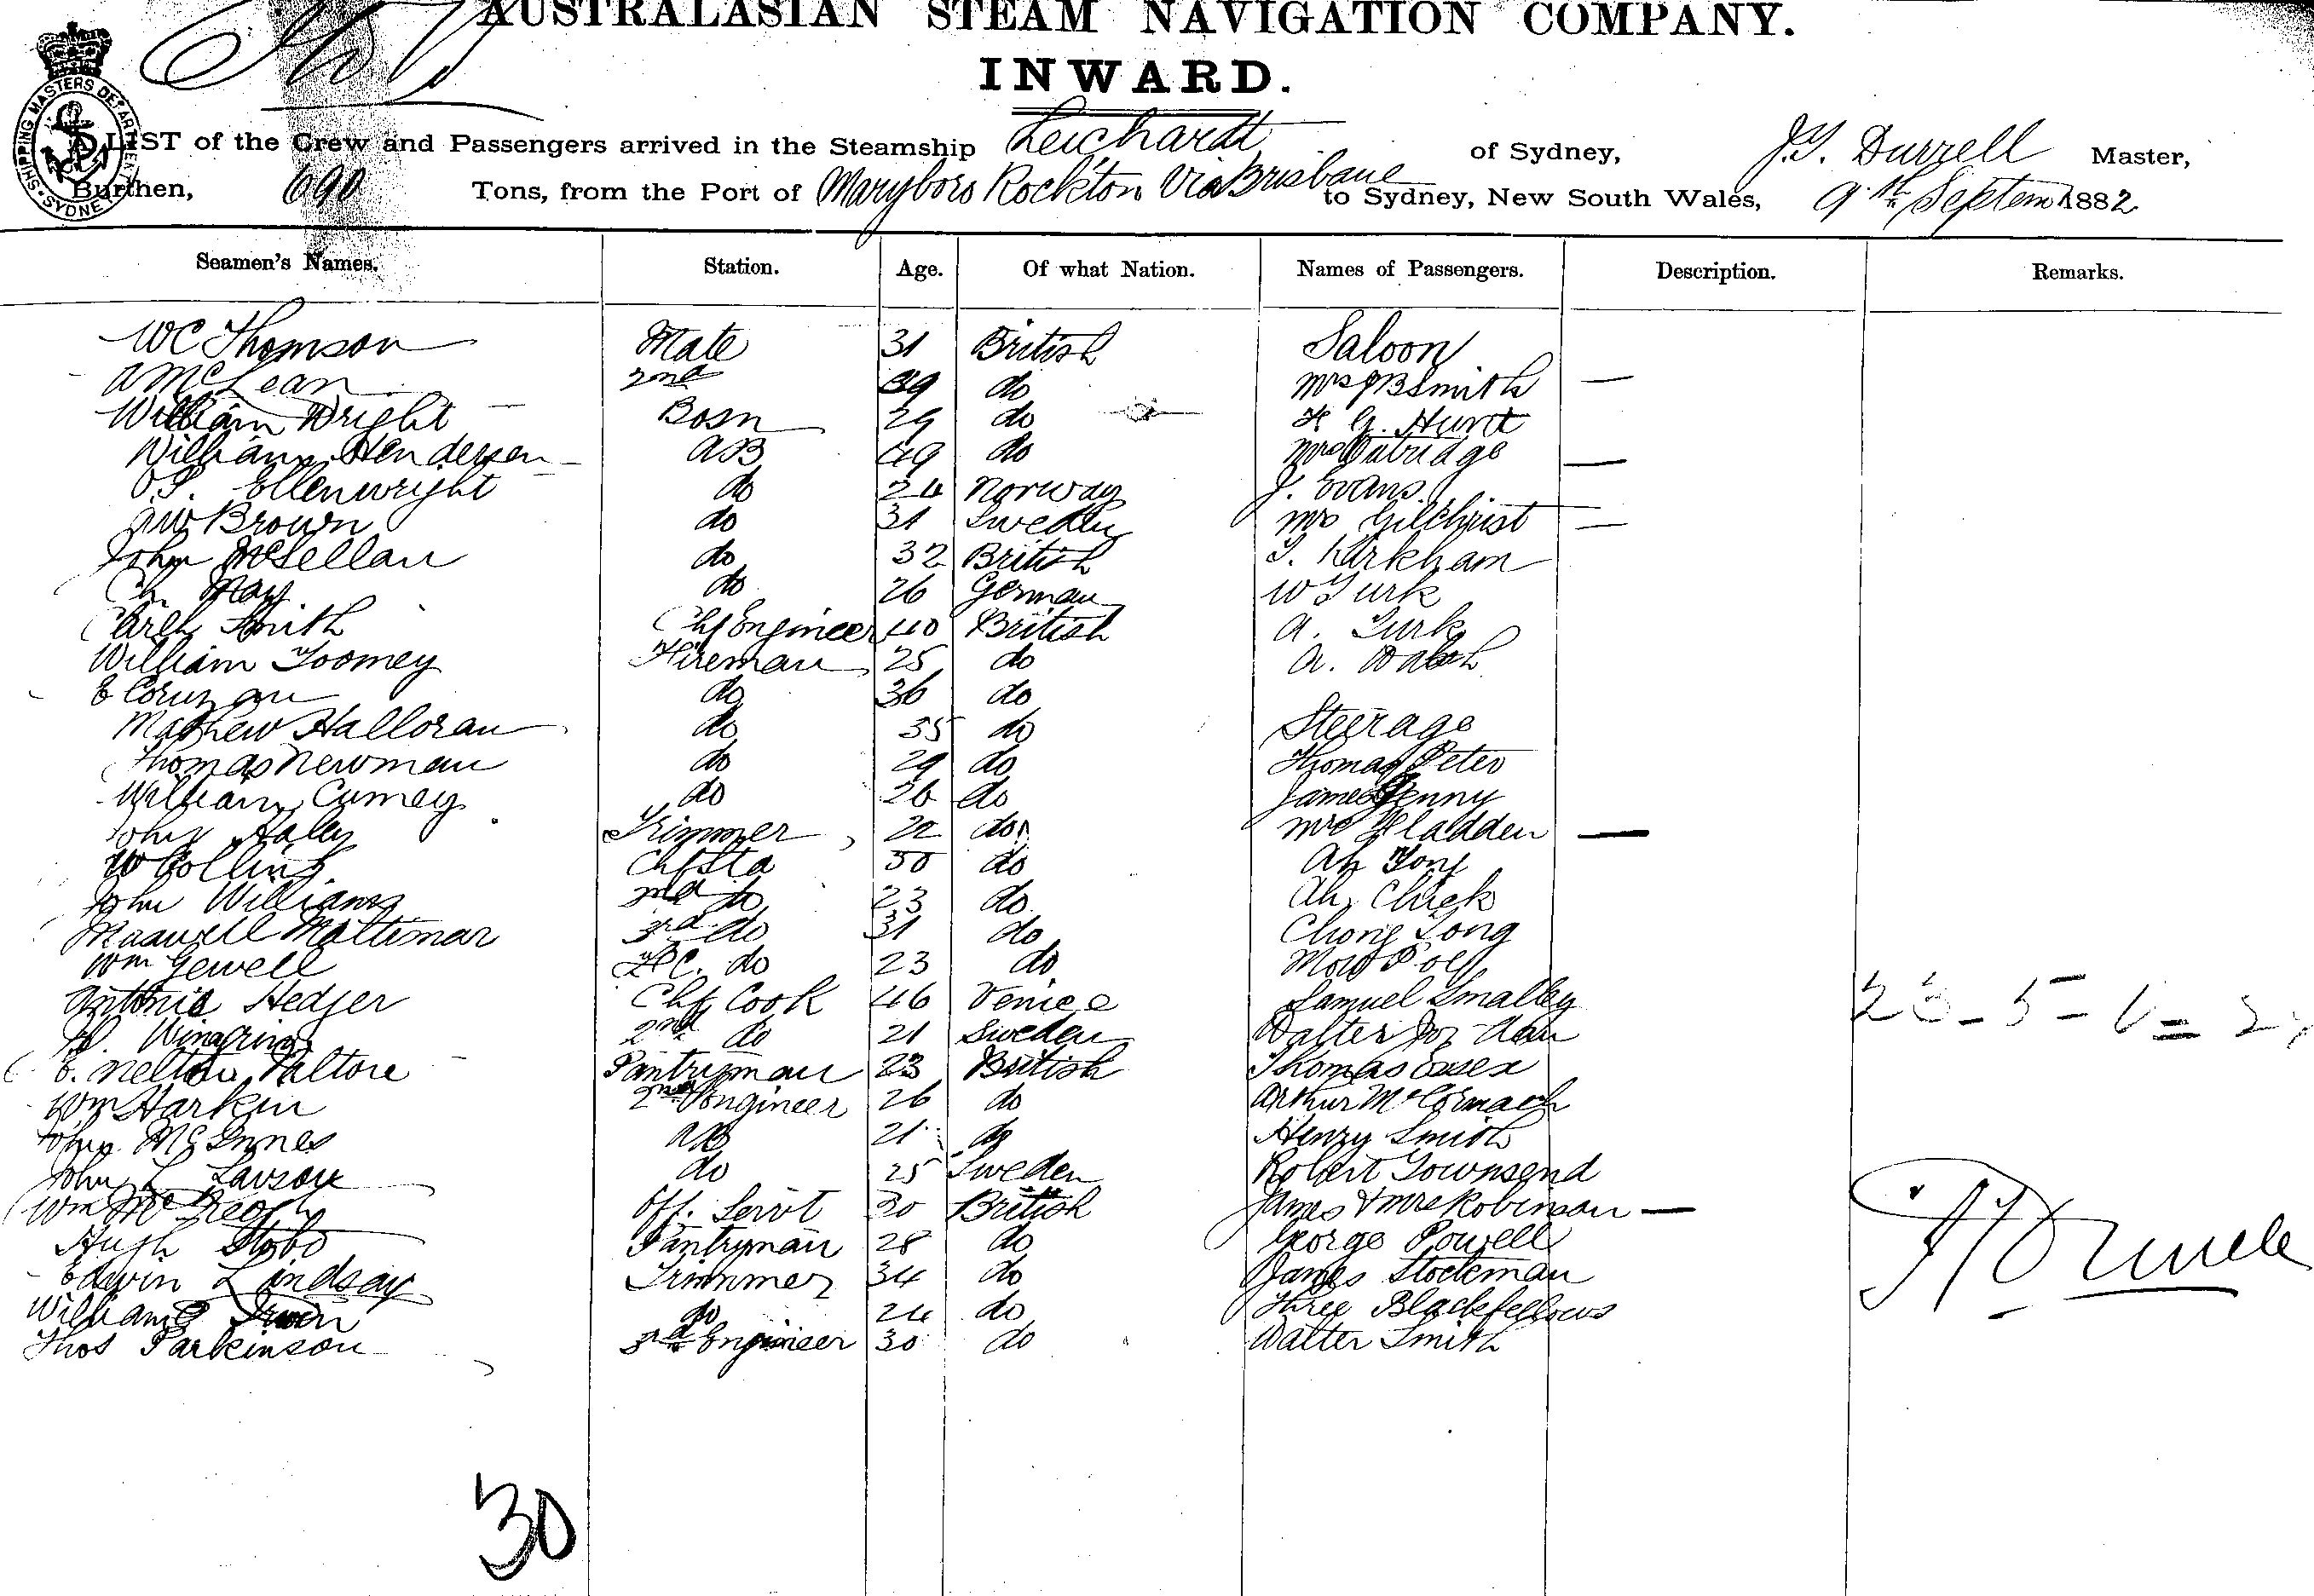 AUSTRALASIAN STEAM NAVIGATION COMPANY.
INWARD.
SHIPPING MASTERS DEPARTMENT SYDNEY
A LIST of the Crew and Passengers arrived in the Steamship Leichardt of Sydney, J.G. Durrell Master,
Burthen, 690 Tons, from the Port of Maryboro Rockton Via Brisbane to Sydney, New South Wales, 9th Septem 1882
Seamen's Names. Station. Age. Of what Nation. Names of Passengers. Description. Remarks.
WC Thomson Mate 31 British Saloon
A McLean 2nd 39 do Mrs JB Smith —
William Wright Bosn 29 do H G. Hurst
William Hendersen AB 49 do Mrs
Ellenwright do 24 Norway J. Evans
AW Brown do 31 Sweden Mrs Gilchrist —
John McLellan do 32 British Kirkham
Ch May do 26 German W Turk
Carl Smith Chf Engineer 40 British A. Turk
William Toomey Fireman 25 do A. Walsh
E do 36 do
Mathew Halloran do 35 do Steerage
Thomas Newman do 29 do Thomas Peter
William Cumey do 26 do James Jenny
John Haley Trimmer 22 do Mrs Gladden —
W Collins Chf Std 50 do Ah Tong
John Williams 2nd do 23 do Ah Chick
Maxwell Mattimar 3rd do 31 do Chong Long
Wm Jewell FC. do 23 do
Antonio Hedjer Chf Cook 46 Venice Samuel Smalley
2nd do 21 Sweden Walter
E. Pantryman 23 British Thomas Essex
Wm Harkin 2nd Engineer 26 do Arthur McCormack
John McInnes AB 21 do Henry Smith
John L do 25 Sweden Robert Townsend
Wm Off. Servt 30 British James & Mrs Robinson —
Hugh Stobo Pantryman 28 do George Powell
Edwin Lindsay Trimmer 34 do James Stockman
William Irwin do 24 do Three Blackfellows
Thos Parkinson 3rd Engineer 30 do Walter Smith
30